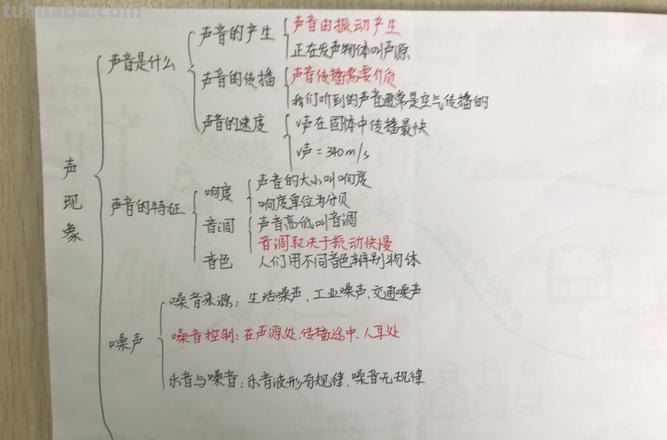 tuhuaba.com
声现象
声音是什么
声音的产生
声音由振动产生
正在发声物体叫声源
声音的传播
声音传播需要介质
我们听到的声音通常是空气传播的
声音的速度
v声在固体中传播最快
v声=340m/s
声音的特征
响度
声音的大小叫响度
响度单位为分贝
音调
声音高低叫音调
音调取决于振动快慢
音色
人们用不同音色辨别物体
噪声
噪音来源：生活噪声、工业噪声、交通噪声
噪音控制：在声源处、传播途中、人耳处
乐音与噪音：乐音波形有规律、噪音无规律